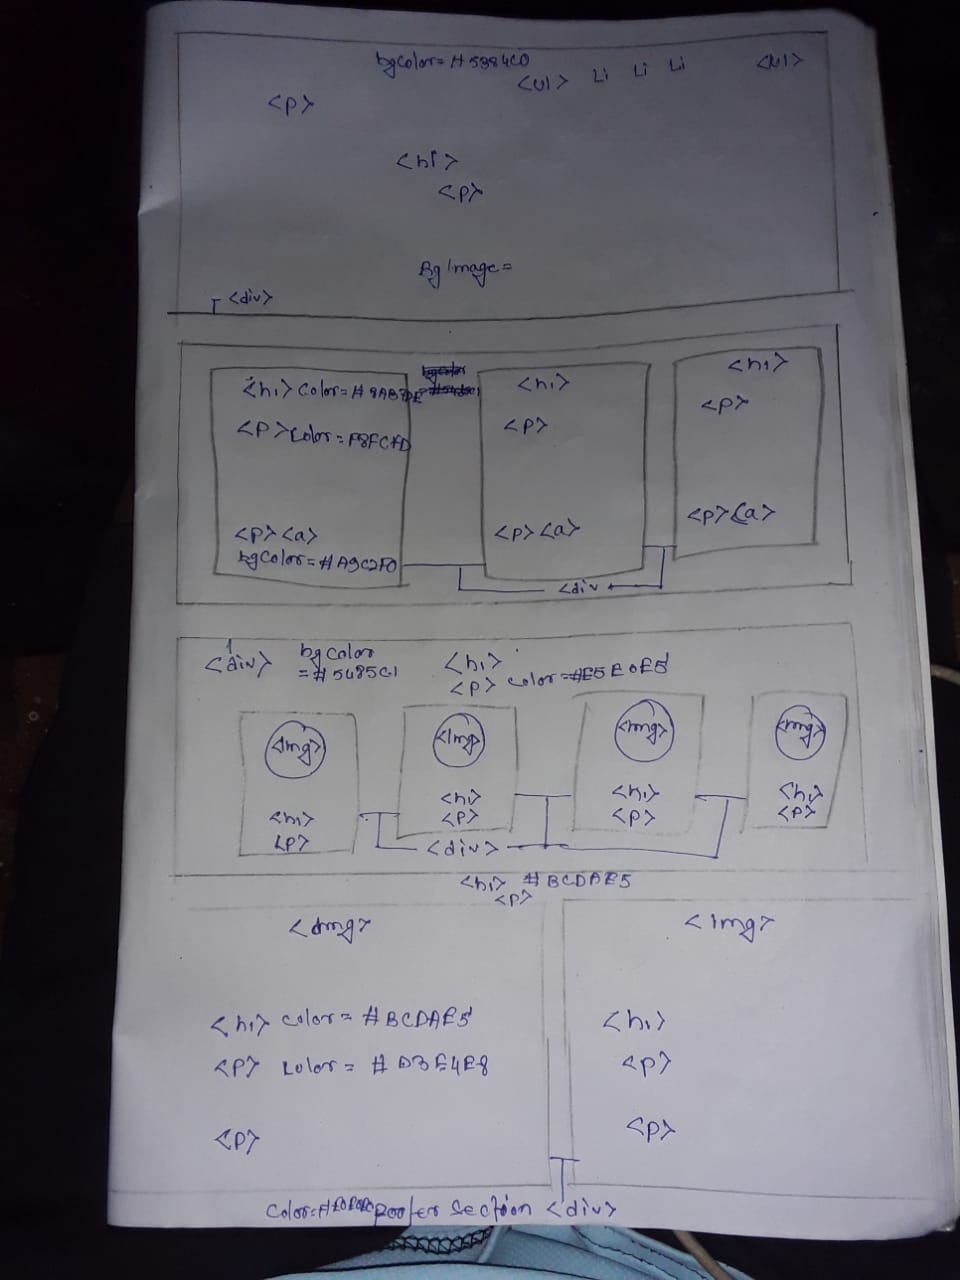 bgcolor=#5884C0
<ul> Li Li Li <ul>
<p>
<h1>
<p>
Bg Image=
<div>
<h1> color=#9AB7DE
<p> color=F8FCFD
<p> <a>
bgcolor=#A9C2F0
<h1>
<p>
<p> <a>
<h1>
<p>
<p> <a>
<div>
1
<div> bgcolor
=#5485C1
<h1>
<p> color=#E5E0E5
<Img>
<h1>
<p>
<Img>
<h1>
<p>
<Img>
<h1>
<p>
<Img>
<h1>
<p>
<div>
<h1> #BCDAE5
<p>
<Img>
<h1> color=#BCDAE5
<p> color=#D3E4E8
<p>
<Img>
<h1>
<p>
<p>
Footer section <div>